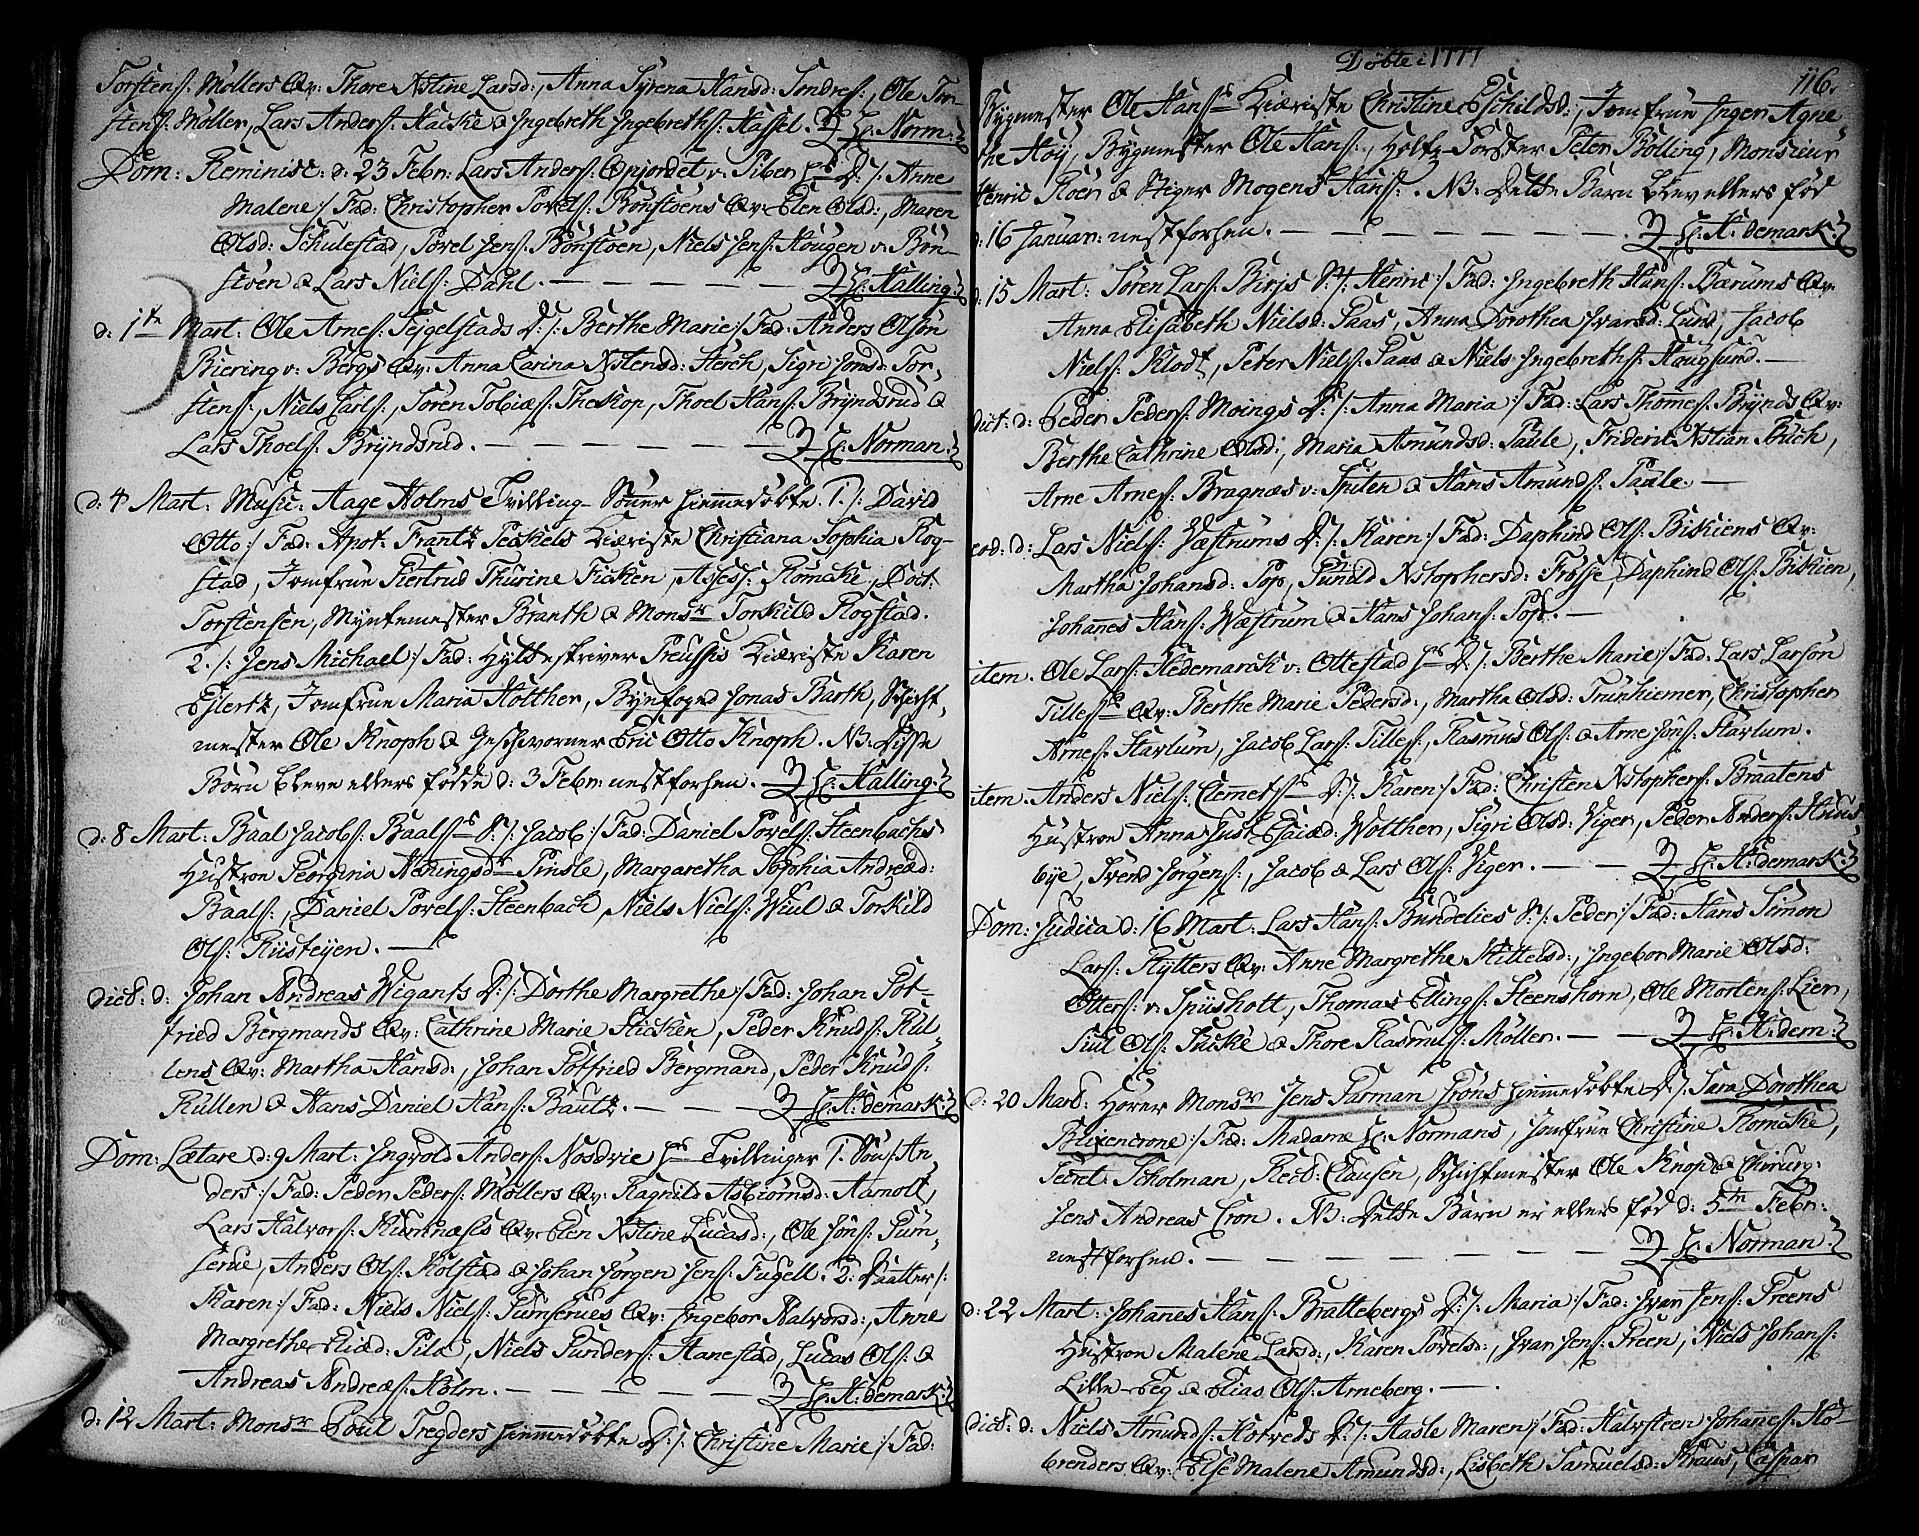 Torstens: Møllers Qv: Thore Xstine Larsd:, Anna Syrena Hansd: Sondres:, Ole Tor-
stens: Møller, Lars Anders: Hacke & Ingebreth Ingebreths: Hassel. H: Norm:
Dom: Reminisc: d: 23 Febr: Lars Anders: Opjordet v: Fiber D: /: Anne
Malene :/ Fad: Christopher Povels: Bønstøens Qv: Elen Olsd:, Maren
Olsd: Schulestad, Povel Jens: Bønstøen, Niels Jens: Hougen v: Bøn-
støen & Lars Niels: Dahl. — H: Halling
d: 1te Mart: Ole Arnes: Tejgelstads D: /: Berthe Marie :/ Fad: Anders Olsøn
Biering v: Bergs Qv: Anna Carina Xstensd: Sterch, Sigri Jonsd: Tor-
stens:, Niels Carls:, Søren Tobiæs: Theskop, Thoel Hans: Bryndsrud &
Lars Thoels: Bryndsrud. — H: Norman
d: 4 Mart: Music: Aage Holms Tvilling-Sønner hiemmedøbte 1. /: David
Otto :/ Fad: Apot: Frantz Peckels Kiæriste Christiana Sophia Rog-
stad, Jomfrue Giertrud Thurine Ficken, Assess: Rømcke, Doct:
Torstensen, Myntemester Branth & Monsr Torkild Rogstad.
2. /: Jens Michael :/ Fad: Hytteskriver Preussis Kiæriste Karen
Eylertz, Jomfrue Maria Holther, Byefoged Jonas Barth, Schicht-
mester Ole Knoph & Geschworner Eric Otto Knoph. NB: Disse
Børn bleve ellers fødde d: 3 Febr: nestforhen. — H: Halling
d: 8 Mart: Baal Jacobs: Baals S: /: Jacob :/ Fad: Daniel Povels: Steenbachs
Hustroe Georgina Neningsdr Pinsle, Margaretha Sophia Andreæd:
Baals:, Daniel Povels: Steenbach, Niels Niels: Wiul & Torkild
Ols: Riisteyen. —
dict: d: Johan Andreas Wigants D: /: Dorthe Margrethe :/ Fad: Johan Got-
fried Bergmands Qv: Cathrine Marie Sticken, Peder Knuds: Rul-
lens Qv: Martha Hansd:, Johan Gotfried Bergmand, Peder Knuds:
Rullen & Hans Daniel Hans: Bautz. — H: H: demark
Dom: Lætare d: 9 Mart: Ingvold Anders: Nosdvie Tvillinger 1. Søn /: An-
ders :/ Fad: Peder Peders: Møllers Qv: Ragnild Asbiørnsd: Aarnolt,
Lars Halvors: Rumnæsis Qv: Elen Xstine Lucasd:, Ole Jøns: Gum-
serue, Anders Ols: Kolstad & Johan Jørgen Jens: Fugell. 2: Daatter /:
Karen :/ Fad: Niels Niels: Gumserues Qv: Ingebor Halvorsd:, Anne
Margrethe Eliæd: Pila, Niels Gunders: Hanestad, Lucas Ols: &
Andreas Andreæs: Holm. — H: H: demark
d: 12 Mart: Monsr Poul Tregders hiemmedøbte D: /: Christine Marie :/ Fad:
Døbte i 1777
116.
Bygmester Ole Hans: Kiæriste Christine Eschildsd:, Jomfrue Inger Agne-
the Høy, Bygmester Ole Hans:, Holtz-Førster Peter Bølling, Monsieur
Henric Roen & Stiger Mogens Hans:. NB: Dette Barn blev ellers fød
d: 16 Januar: nestforhen. — H: H: demark
d: 15 Mart: Søren Lars: Birjs S: /: Henric :/ Fad: Ingebreth Hans: Bærums Qv:
Anna Elisabeth Nielsd: Saas, Anna Dorothea Ivarsd: Lund, Jacob
Niels: Klodt, Peter Niels: Saas & Niels Ingebreths: Hougsund. —
dict: d: Peder Peders: Moings D: /: Anna Maria :/ Fad: Lars Thomes: Brynds Qv:
Berthe Cathrine Olsd:, Maria Asmundsd: Saule, Frideric Xstian Struch,
Arne Arnes: Bragnæs v: Spiten & Hans Amunds: Saule. —
eod: d: Lars Niels: Wæstrums D: /: Karen :/ Fad: Daphind Ols: Bikiens Qv:
Martha Johansd: Pop, Gunild Xstophersd: Frosse, Daphind Ols: Bikien,
Johannes Hans: Wæstrum & Hans Johans: Pop. —
item. Ole Lars: Hedemarck v: Ottestad D: /: Berthe Marie :/ Fad: Lars Larsøn
Tilles: Qv: Berthe Marie Pedersd:, Martha Olsd: Trunhiemer, Christopher
Arnes: Starlum, Jacob Lars: Tilles:, Rasmus Ols: & Arne Jøns: Starlum.
item. Anders Niels: Clemets: D: /: Karen :/ Fad: Christen Xstophers: Braatens
Hustroe Anna Just Esaiæd: Wolther, Sigri Olsd: Viger, Peder Anders: Huus-
bye, Svend Jørgens:, Jacob & Lars Ols: Viger. — H: H: demark
Dom: Judica d: 16 Mart: Lars Hans: Bundelies S: /: Peder :/ Fad: Hans Simon
Lars: Skytters Qv: Anne Margrethe Kittelsd:, Ingebor Marie Olsd:
Otters: v: Spiisholt, Thomas Ellings: Steenshorn, Ole Mortens: Lien,
Giul Ols: Fücke & Thore Rasmus: Møller. — H: H: dem:
d: 20 Mart: Hører Monsr Jens Garman Crøns hiemmedøbte D: /: Sara Dorothea
Blixencrone :/ Fad: Madame H: Normans, Jomfrue Christine Rømcke,
Secret: Scholman, Rect: Clausen, Schichtmester Ole Knoph & Chirurg:
Jens Andreas Cron. NB: Dette Barn er ellers fød d: 5te Febr:
nestforhen. — H: Norman
d: 22 Mart: Johannes Hans: Brattebergs D: /: Maria :/ Fad: Ivar Jens: Preens
Hustroe Malene Larsd:, Karen Povelsd:, Ivar Jens: Preen, Niels Johans:
Lille-Teg & Elias Ols: Arneberg. —
dict: d: Niels Amunds: Hotveds D: /: Aasle Maren :/ Fad: Halvsteen Johannes: Ho-
brenders Qv: Else Malene Amundsd:, Lisbeth Samuelsd: Kraus, Caspar